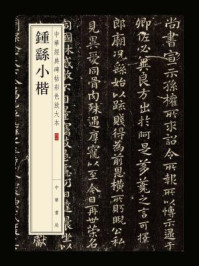 尚書宣示孫權所求詔令所報所以博示逮于
卿佐必冀良方出於阿是芻蕘之言可擇
郎廟況繇始以疎賤得為前恩橫所盱睨公私
見異愛同骨肉殊遇厚寵以至今日再世榮名
中華經典碑帖彩色放大本
鍾繇小楷
中華書局